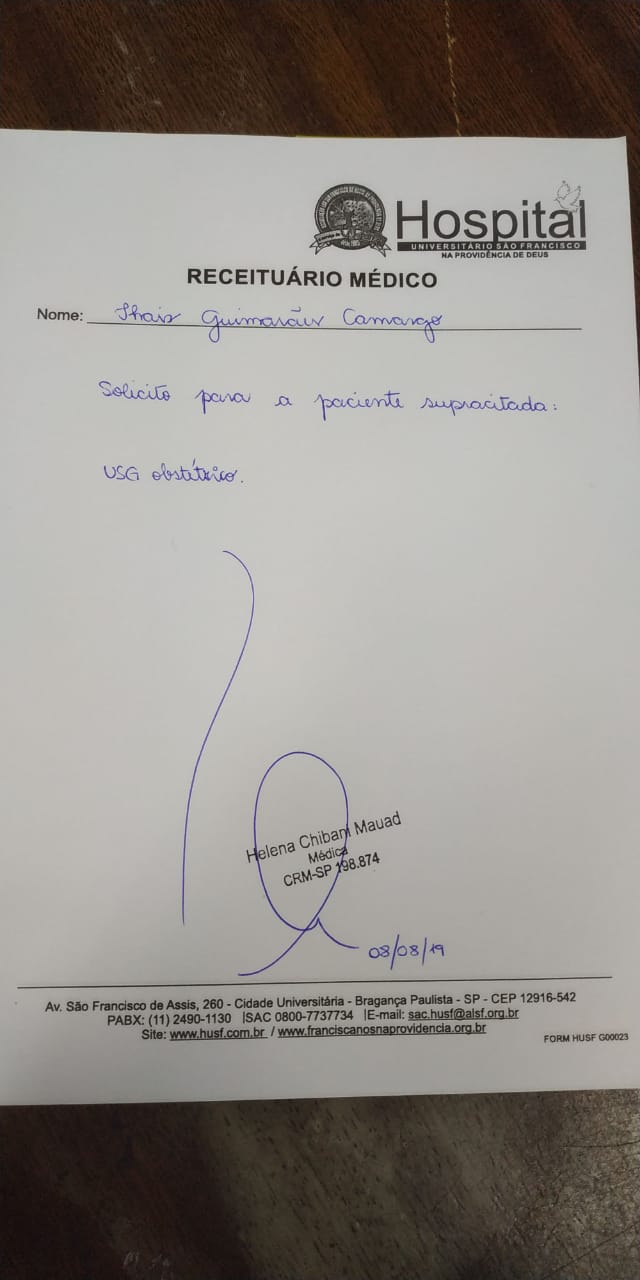 Hospital
UNIVERSITÁRIO SÃO FRANCISCO
NA PROVIDÊNCIA DE DEUS
RECEITUÁRIO MÉDICO
Nome: Thais Guimarães Camargo
Solicito para a paciente supracitada:
USG obstétrico.
Helena Chibani Mauad
Médica
CRM-SP 198.874
08/08/19
Av. São Francisco de Assis, 260 - Cidade Universitária - Bragança Paulista - SP - CEP 12916-542
PABX: (11) 2490-1130 |SAC 0800-7737734 |E-mail: sac.husf@alsf.org.br
Site: www.husf.com.br / www.franciscanosnaprovidencia.org.br
FORM HUSF G00023